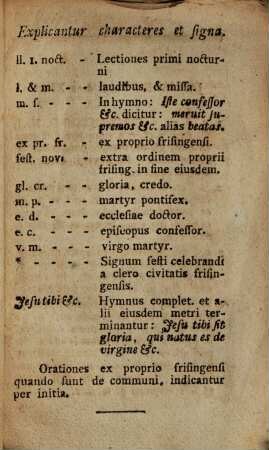 Explicantur characteres et signa.
ll. 1. noct. - - Lectiones primi noctur-
ni
l. & m. - - laudibus, & missa.
m. s. - - - In hymno: Iste confessor
&c. dicitur: meruit su-
premos &c. alias beatas.
ex pr. fr. - - ex proprio frisingensi.
fest. nov. - - extra ordinem proprii
frising. in fine eiusdem.
gl. cr. - - gloria, credo.
m. p. - - - martyr pontifex.
e. d. - - - ecclesiae doctor.
e. c. - - - episcopus confessor.
v. m. - - - virgo martyr.
* - - - Signum festi celebrandi
a clero civitatis frisin-
gensis.
Jesu tibi &c. Hymnus complet. et a-
lii eiusdem metri ter-
minantur: Jesu tibi sit
gloria, qui natus es de
virgine &c.
Orationes ex proprio frisingensi
quando sunt de communi, indicantur
per initia.